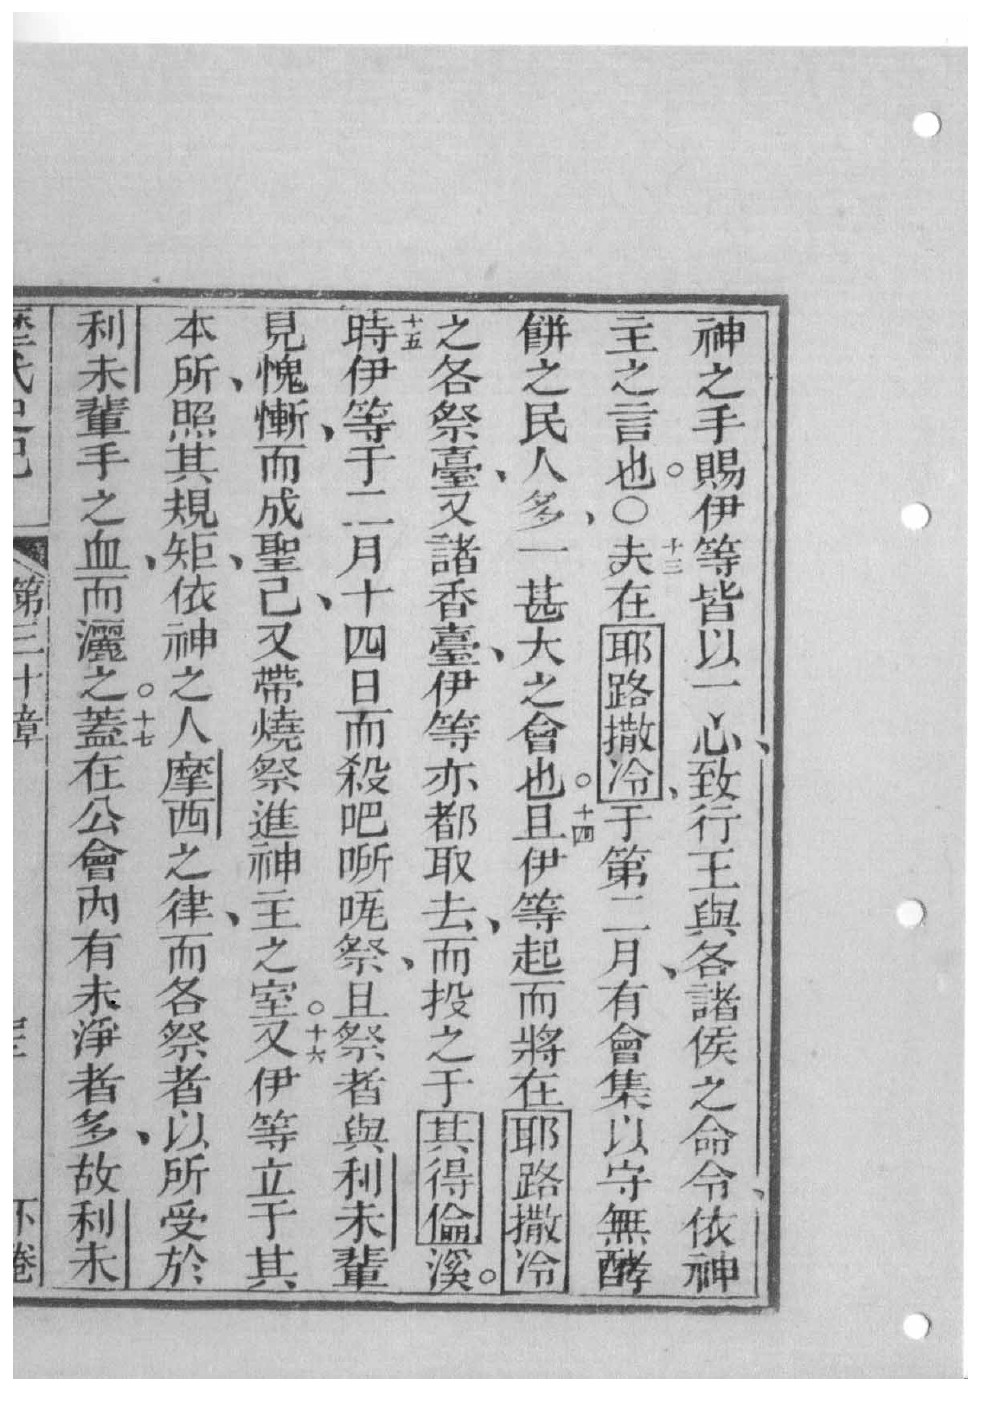 神之手賜伊等皆以一心、致行王與各諸侯之命令、依神
主之言也。〇十三夫在耶路撒冷、于第二月、有會集以守無酵
餅之民人多、一甚大之會也。十四且伊等起而將在耶路撒冷
之各祭臺、又諸香臺、伊等亦都取去、而投之于其得倫溪。
十五時伊等于二月十四日而殺吧𠵽咓祭、且祭者與利未輩
見愧慚、而成聖己、又帶燒祭進神主之室。十六又伊等立于其
本所、照其規矩、依神之人摩西之律、而各祭者以所受於
利未輩手之血、而灑之。十七蓋在公會內有未淨者多、故利未
歷代史記 第三十章 下卷